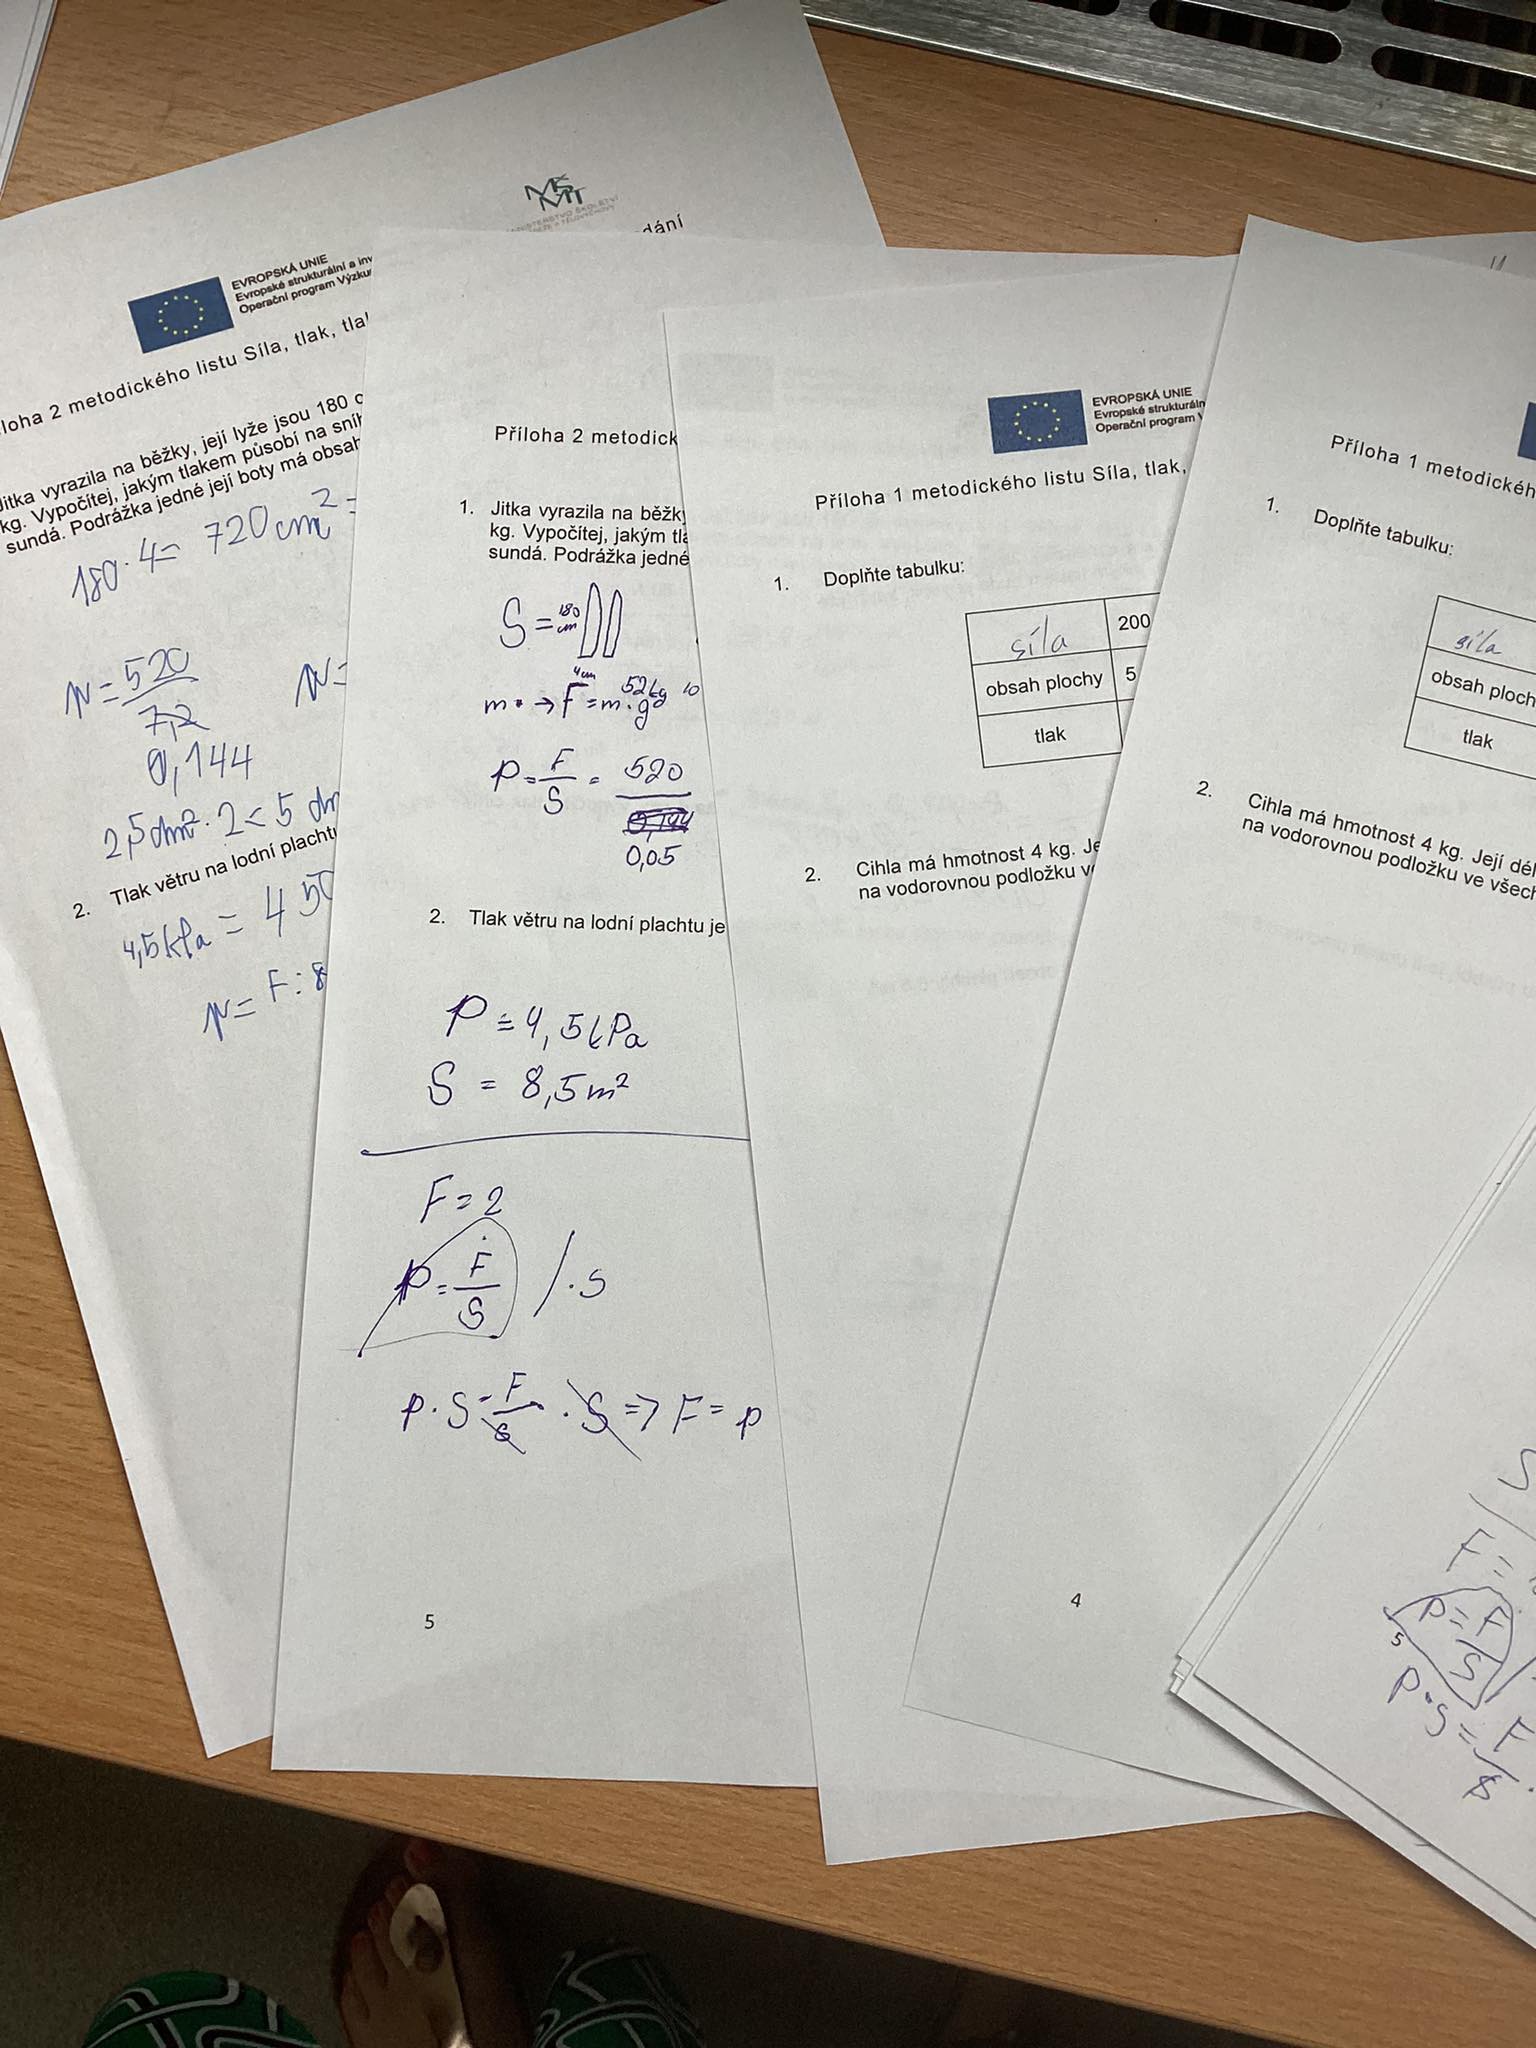 MŠMT
dání
EVROPSKÁ UNIE
Evropské strukturální a inv
Operační program Výzku
loha 2 metodického listu Síla, tlak, tla
Jitka vyrazila na běžky, její lyže jsou 180 c
kg. Vypočítej, jakým tlakem působí na sníh
sundá. Podrážka jedné její boty má obsah
180 · 4 = 720 cm² =
p = 520
7,2
0,144
p =
2,5 dm² · 2 < 5 dm
2. Tlak větru na lodní plachtu
4,5 kPa = 450
p = F : 8
Příloha 2 metodick
1. Jitka vyrazila na běžky
kg. Vypočítej, jakým tla
sundá. Podrážka jedné
S = 180 cm
4cm
m → F = m · g
52kg 10
p = F/S = 520
0,144
0,05
2. Tlak větru na lodní plachtu je
P = 4,5 kPa
S = 8,5 m²
F = ?
p = F/S / · S
p · S = F/S · S => F = p
5
EVROPSKÁ UNIE
Evropské strukturáln
Operační program V
Příloha 1 metodického listu Síla, tlak,
1. Doplňte tabulku:
síla 200
obsah plochy 5
tlak
2. Cihla má hmotnost 4 kg. Je
na vodorovnou podložku v
4
Příloha 1 metodickéh
1. Doplňte tabulku:
síla
obsah ploch
tlak
2. Cihla má hmotnost 4 kg. Její dél
na vodorovnou podložku ve všech
S
F =
p = F/S
5
p · S = F/S ·